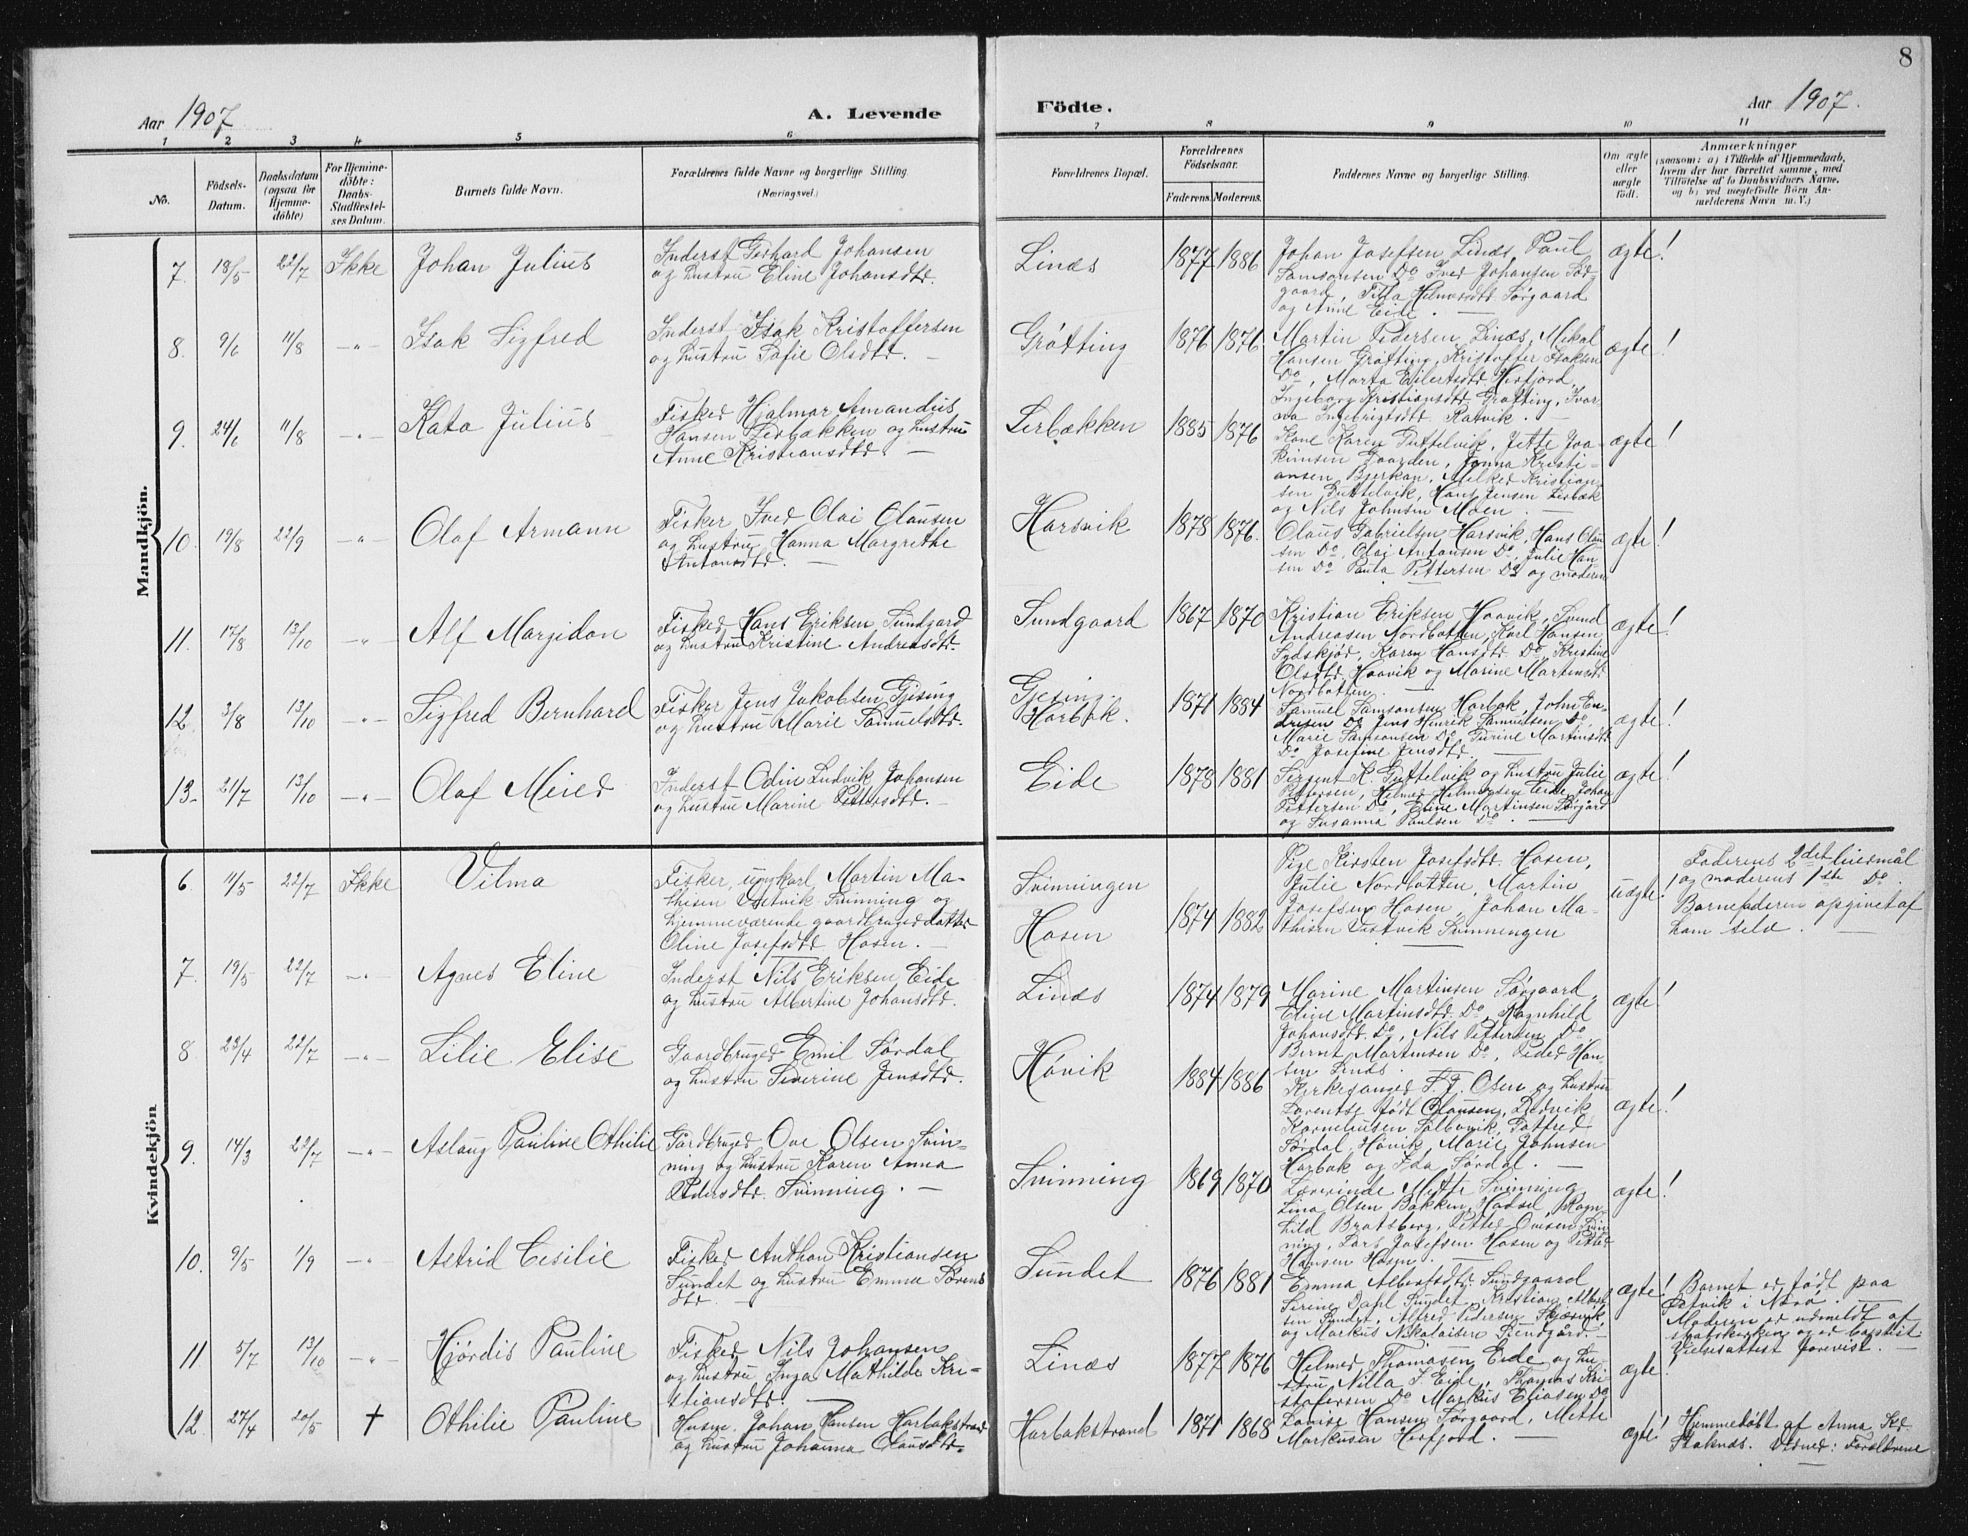 8
Aar 1907
A. Levende
Födte.
Aar 1907.
1 2 3 4 5 6 7 8 9 10 11
No.
Födsels-
Datum.
Daabsdatum
(ogsaa for
Hjemme-
döbte)
For Hjemme-
döbte:
Daabs-
Stadfæstel-
ses Datum.
Barnets fulde Navn.
Forældrenes fulde Navne og borgerlige Stilling.
(Næringsvei.)
Forældrenes Bopæl.
Forældrenes
Födselsaar.
Faderens. Moderens.
Faddernes Navne og borgerlige Stilling.
Om ægte
eller
uægte
født.
Anmærkninger
(saasom: a) i Tilfælde af Hjemmedaab,
hvem der har forrettet samme, med
Tilföielse af to Daabsvidners Navne,
og b) ved uægtefödte Börn An-
melderens Navn m. V.)
Mandkjön.
7. 18/5 22/7 Ikke Johan Julius
Inderst Gerhard Johansen
og hustru Eline Johansdtr.
Linæs 1877 1886
Johan Josefsen Linæs, Paul
Samsonsen Do Iver Johansen Sör-
gaard,
og Anne Eide.
ægte!
8. 9/6 11/8 -"- Isak Sigfred
Inderst Isak Kristoffersen
og hustru Sofie Olsdtr.
Grötting 1876 1876.
Martin Pedersen Linæs, Mikal
Hansen Grötting, Kristoffer Isaksen
Do, Marta Eilertsdtr Hosfjord,
Ingeborg Kristiansdtr Grötting,
Ingebrigtsdtr Ratvik.
ægte!
9. 24/6 11/8 -"- Kato Julius
Fisker Hjalmar Amandus
Hansen Lerbækken og hustru
Anne Kristiansdtr.
Lerbækken 1885 1876
Kone Karen Duttelvik, Jette Joa-
kimsen
ansen Bjerkan, Melker Kristian-
sen Duttelvik, Hans Jensen Lerbæk
og Nils Johnsen Moen.
ægte!
10. 19/8 22/9 -"- Olaf Armann
Fisker Iver Olai Olausen
og hustru Hanna Margrethe
Antonsdtr.
Harsvik 1878 1876.
Olaus Gabrielsen Harsvik, Hans Olau-
sen Do, Olai Antonsen Do, Julie Han-
sen Do Paula Pettersen Do og moderen
ægte!
11. 17/8 13/10 -"- Alf Margidon
Fisker Hans Eriksen Sundgard
og hustru Kristine Andreasdtr.
Sundgaard 1867 1870
Kristian Eriksen Haavik, Svend
Andreasen Nordbotten, Karl Hansen
Sydskjör, Karen Hansdtr Do, Kristine
Olsdtr Haavik og Marine Martinsdtr
Nordbotten.
ægte!
12. 3/8 13/10 -"- Sigfred Bernhard
Fisker Jens Jakobsen Gjesing
og hustru Marie Samuelsdtr.
Gjesing.
Harbak. 1871 1884
Samuel Samsonsen Harbak, John En-
dresen Do Jens Henrik Samuelsen Do,
Marie Samsonsen Do Turine Martinsdtr
Do Josefine Jensdtr
ægte!
13. 21/7 13/10 -"- Olaf Meier
Inderst Odin Ludvik Johansen
og hustru Marine Pettersdtr.
Eide 1878 1881
Sergent K. Duttelvik og hustru Julie
Pettersen, Helmer Helmersen Eide, Johan
Pettersen Do, Eline Martinsen Sörgård
og Susanna Paulsen Do.
ægte!
Kvindekjön
6 11/5 22/7 Ikke Vilma
Fisker, ungkarl Martin Ma-
thisen Vestvik Svinning og
hjemmeværende gaardbrugerdatter
Oline Josefsdtr Hosen.
Svinningen
Hosen 1874 1882
Pige Kirsten Josefsdtr Hosen,
Julie Nordbotten, Martin
Josefsen Hosen, Johan Ma-
thisen Vestvik Svinningen
uægte!
Faderens 2det leiermål
og moderens 1ste Do.
Barnefaderen opgivet af
ham selv.
7 19/5 22/7 -"- Agnes Eline
Inderst Nils Eriksen Eide
og hustru Albertine Johansdtr.
Linæs 1874 1879
Marine Martinsen Sörgaard,
Eline Martinsdtr Do, Ragnhild
Johansdtr Do, Nils Pettersen Do
Bernt Martinsen Do, Peder Han-
sen Linæs.
ægte!
8 23/4 22/7 -"- Lilie Elise
Gaardbruger Emil Sördal
og hustru Severine Jensdtr.
Hövik 1884 1886
Kirkesanger T. J. Osen og hustru
Lorentse født Olausen, Ludvik
Korneliusen Tolbovik, Gotfred
Sördal Hövik, Marie Johnsen
Harbak og Ida Sördal.
ægte!
9. 14/3 22/7 -"- Aslaug Pauline Othilie
Gårdbruger Ove Olsen Svin-
ning og hustru Karen Anna
Pedersdtr. Svinning.
Svinning 1869 1870
Lærerinde Mette Svinning,
Lina Olsen Bakken Hadsel, Ragn-
hild Bratsberg, Petter Ovesen Svin-
ning, Lars Josefsen Hosen og Petter
Hansen Hosen.
ægte!
10. 9/5 1/9 -"- Astrid Cesilie
Fisker Anthon Kristiansen
Sundet og hustru Emma Sörens
dtr.
Sundet 1876 1881
Emma Albertsdtr Sundgaard
Serine Dahl Sundet, Kristian Albert-
sen Sundet, Alfred Pedersen Skjærvik,
og Markus Nikolaisen Sundgård.
ægte!
Barnet er født paa
i Nærö.
Moderen er udmeldt af
statskirken og er baptist
Vielsesattest forevist.
11. 5/7 13/10 -"- Hjördis Pauline
Fisker Nils Johansen
og hustru Inga Mathilde Kri-
stiansdtr.
Linæs 1877 1876
Helmer Thomasen Eide og hu-
stru Nilla J. Eide, Thomas Kri-
stofersen Do Markus Eliasen Do
ægte!
12. 27/4 20/5 † Othilie Pauline
Husm. Johan Hansen Harbakstrand
og hustru Johanna Olausdtr.
Harbakstrand 1871 1868
Lovise Hansen Sörgaard, Mette
Markusen Hosfjord.
ægte!
Hjemmedöbt af Anna
Stoknæs. Vidner: Forældrene